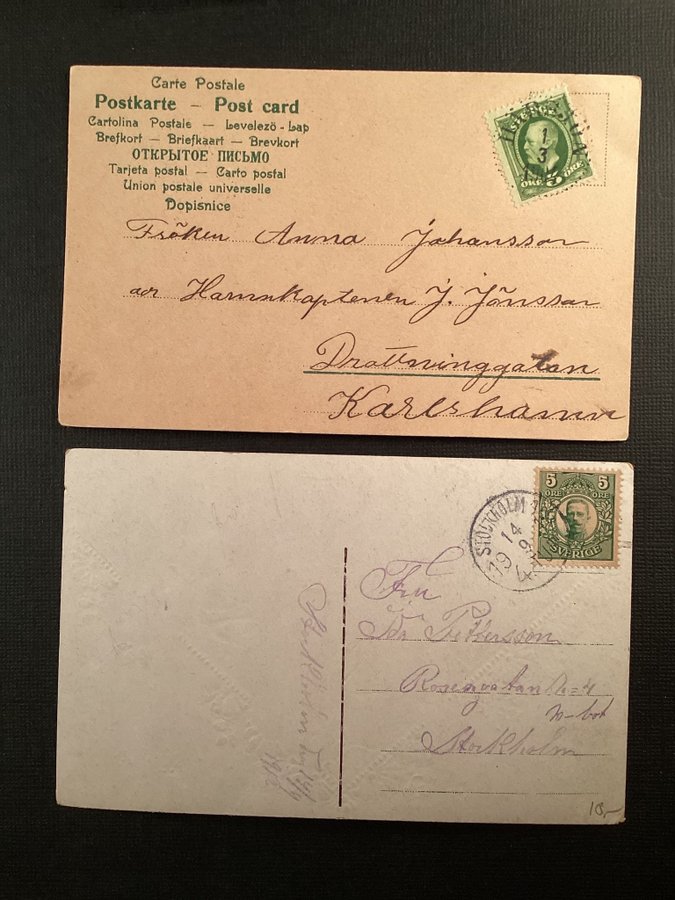 Carte Postale
Postkarte – Post card
Cartolina Postale – Levelező-Lap
Brefkort – Briefkaart – Brevkort
ОТКРЫТОЕ ПИСЬМО
Tarjeta postal – Carto postal
Union postale universelle
Dopisnice
1
3
5
ÖRE ÖRE
Fröken Anna Johansson
adr Hamnkaptenen J. Jönsson
Drottninggatan
Karlshamn
5 5
ÖRE ÖRE
SVERIGE
STOCKHOLM
14
19
Fru
Pettersson
Rosengatan No 4
Stockholm
Stockholm
10,-